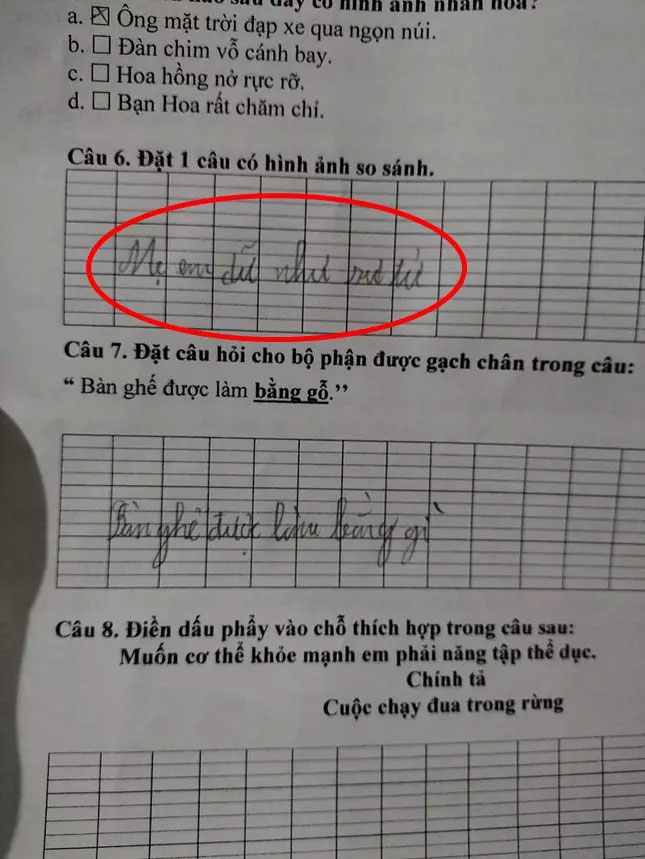 sau đây có hình ảnh nhân hoá?
a. ☒ Ông mặt trời đạp xe qua ngọn núi.
b. ☐ Đàn chim vỗ cánh bay.
c. ☐ Hoa hồng nở rực rỡ.
d. ☐ Bạn Hoa rất chăm chỉ.
Câu 6. Đặt 1 câu có hình ảnh so sánh.
Mẹ em dữ như sư tử
Câu 7. Đặt câu hỏi cho bộ phận được gạch chân trong câu:
“ Bàn ghế được làm bằng gỗ.”
Bàn ghế được làm bằng gì
Câu 8. Điền dấu phẩy vào chỗ thích hợp trong câu sau:
Muốn cơ thể khỏe mạnh em phải năng tập thể dục.
Chính tả
Cuộc chạy đua trong rừng